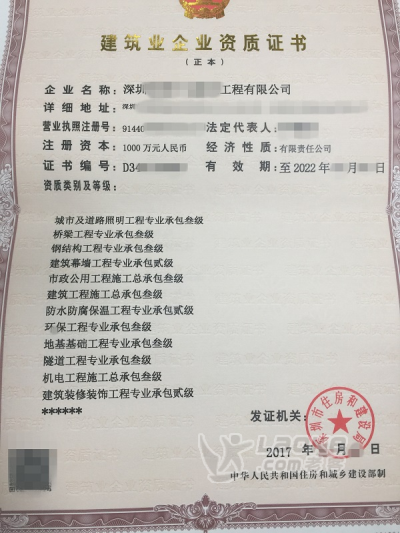 建筑业企业资质证书
（正本）
企业名称：深圳 工程有限公司
详细地址：深圳
营业执照注册号：9144 法定代表人：
注册资本：1000万元人民币 经济性质：有限责任公司
证书编号：D34 有效期：至2022 年 月 日
资质类别及等级：
城市及道路照明工程专业承包叁级
桥梁工程专业承包叁级
钢结构工程专业承包叁级
建筑幕墙工程专业承包贰级
市政公用工程施工总承包叁级
建筑工程施工总承包叁级
防水防腐保温工程专业承包贰级
环保工程专业承包叁级
地基基础工程专业承包叁级
隧道工程专业承包叁级
机电工程施工总承包叁级
建筑装修装饰工程专业承包贰级
******
发证机关：
深圳市住房和建设局
2017 年 月 日
中华人民共和国住房和城乡建设部制